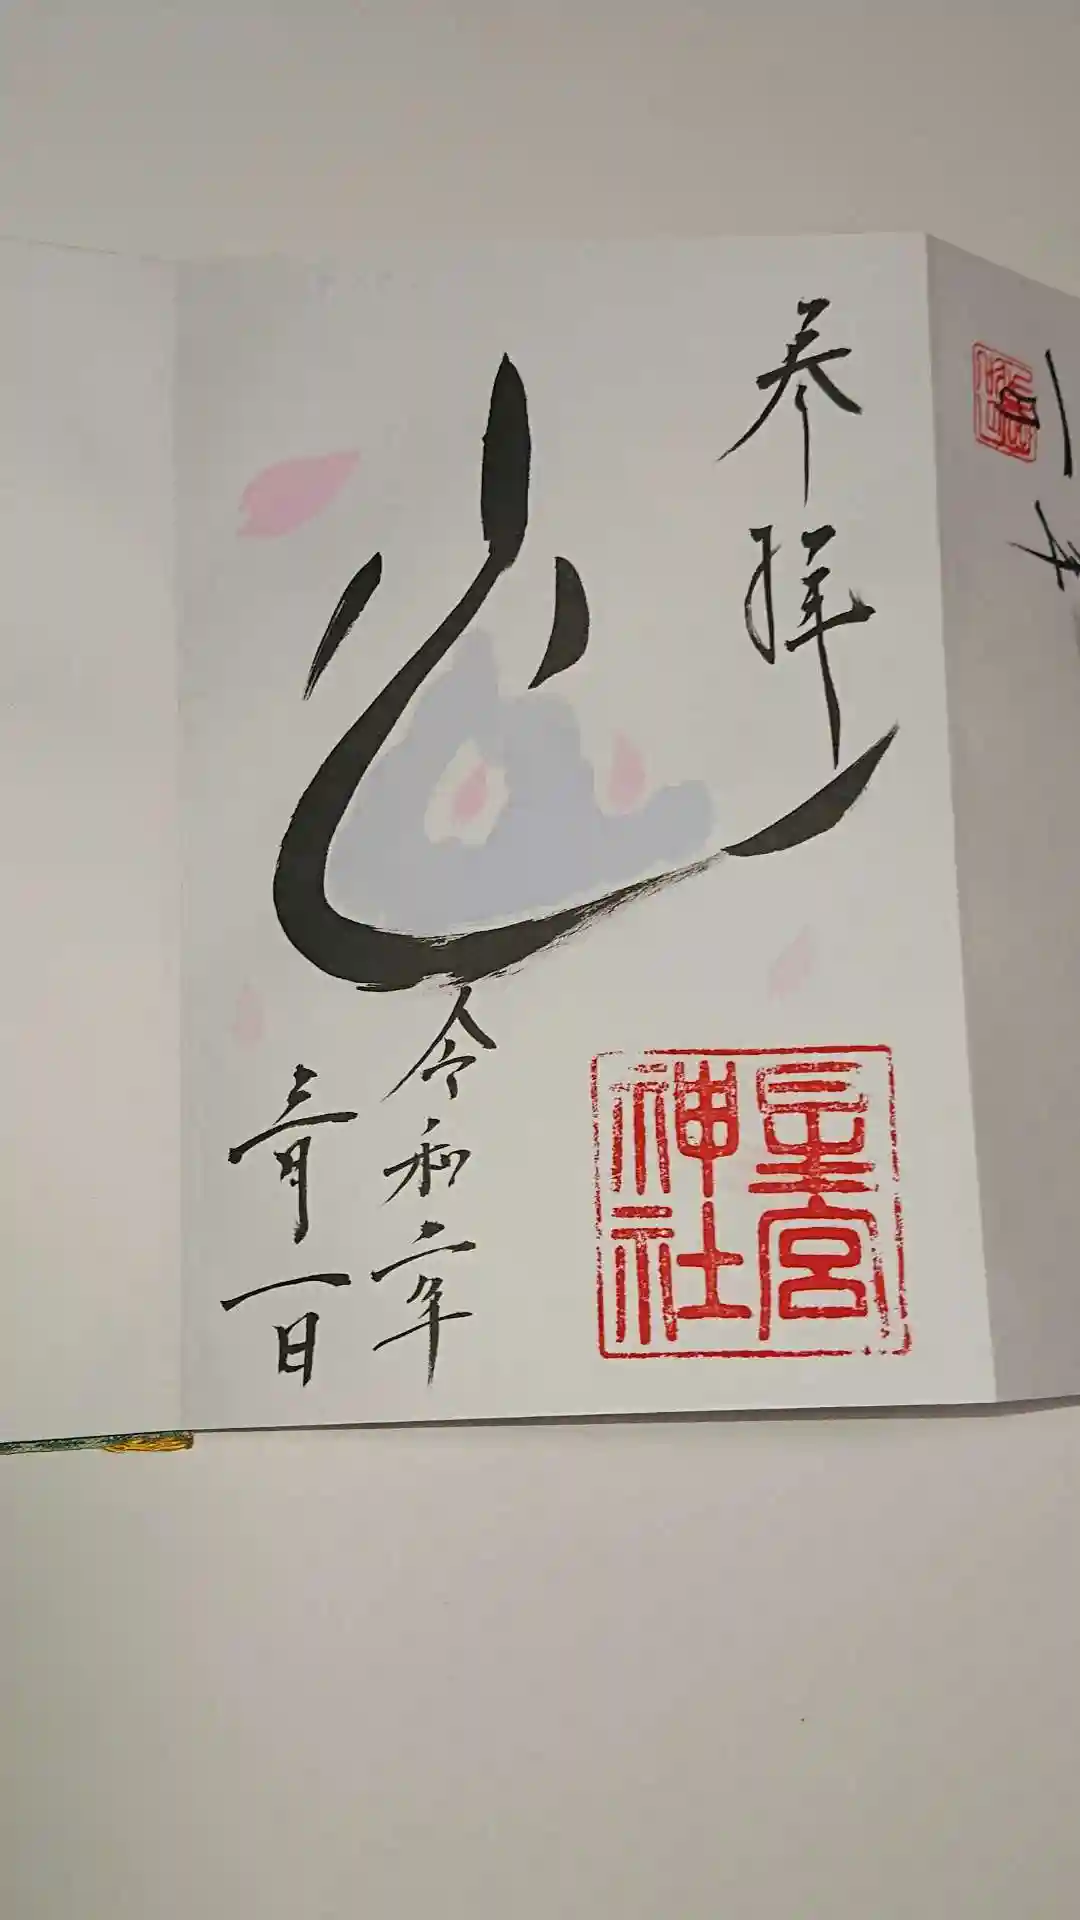 奉拝
星宮
神社
令和二年
三月一日